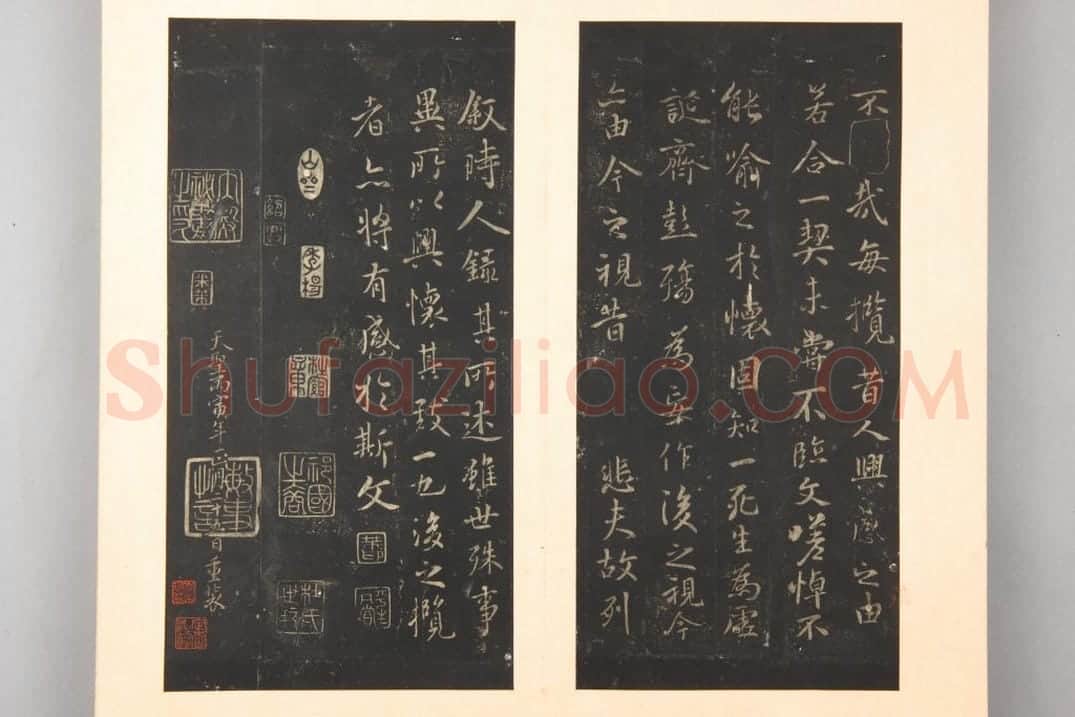 不哉每攬昔人興感之由
若合一契未嘗不臨文嗟悼不
能喻之於懷固知一死生為虛
誕齊彭殤為妄作後之視今
亦由今之視昔 悲夫故列
敘時人錄其所述雖世殊事
異所以興懷其致一也後之攬
者亦將有感於斯文
天聖丙寅年正月二十五日重裝
Shufaziliao.COM